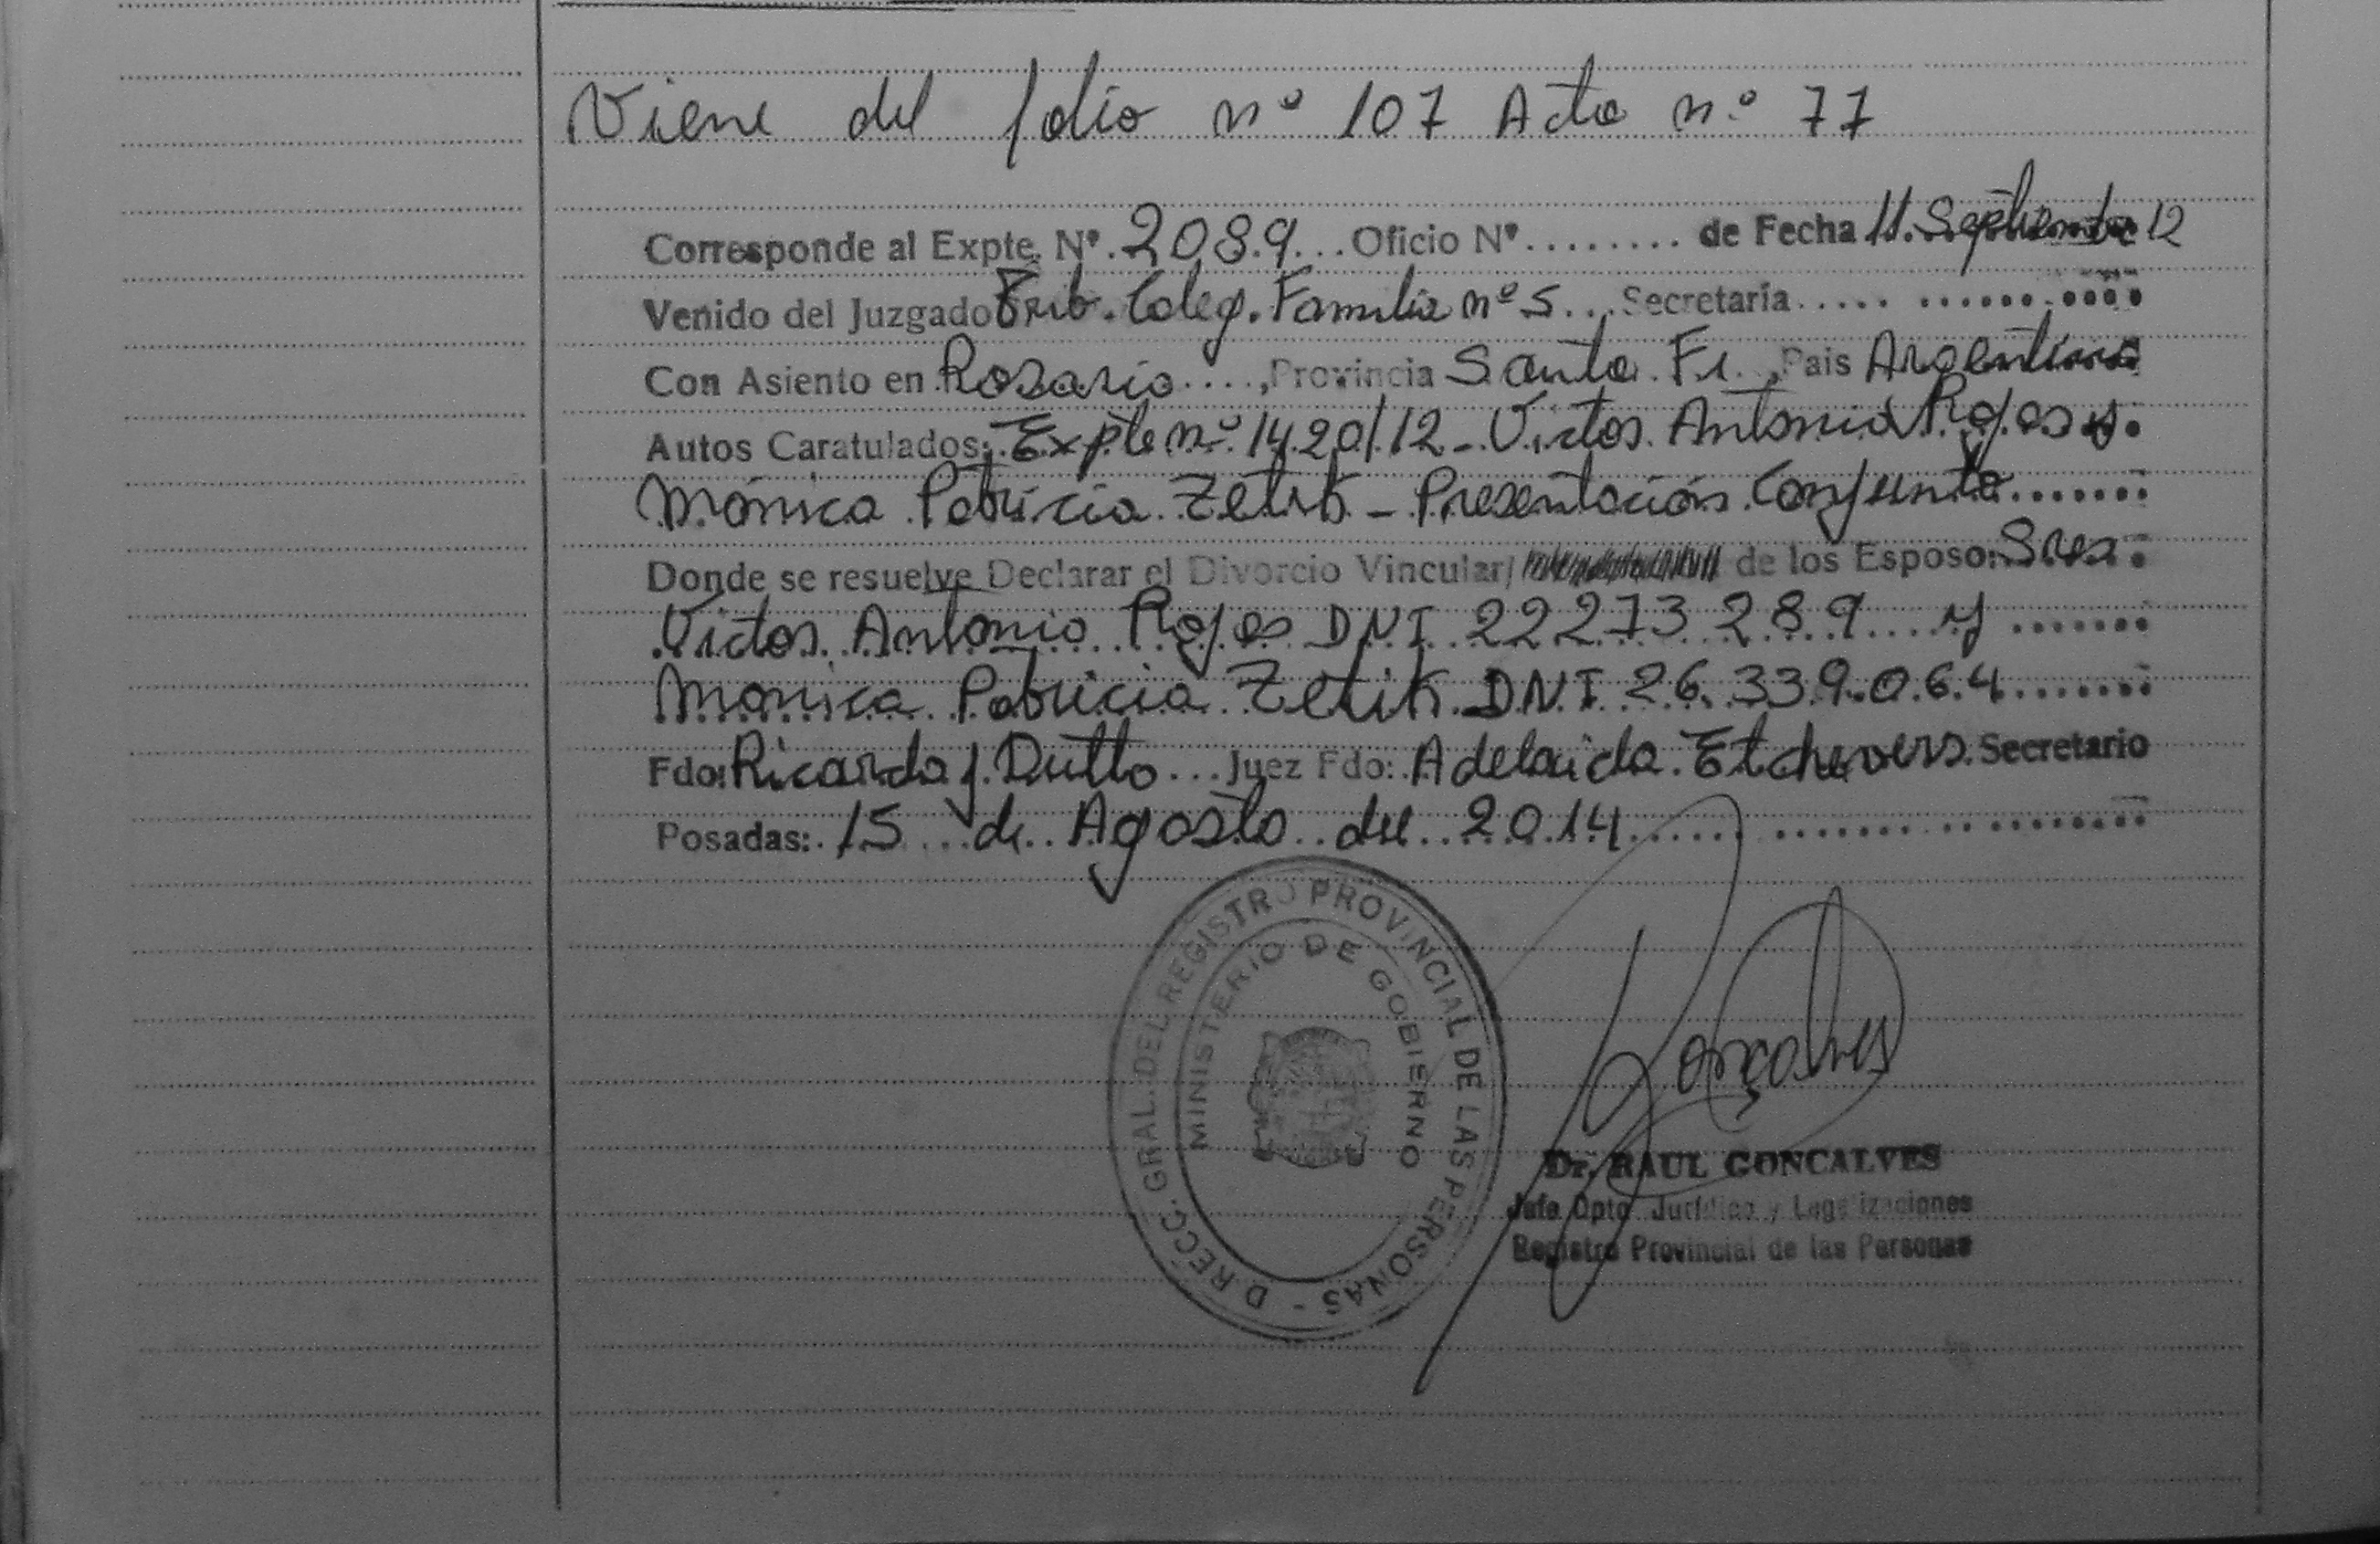 Viene del folio nº 107 Acta nº 77
Corresponde al Expte. Nº. 2089... Oficio Nº........ de Fecha 11. Septiembre 12
Venido del Juzgado Trib. Coleg. Familia nº 5... Secretaría..... ..........
Con Asiento en Rosario...., Provincia Santa Fe., Pais Argentina
Autos Caratulados: Expte nº 1420/12 - Victor Antonio Rojas y.
Mónica Patricia Zetik - Presentación Conjunta.......
Donde se resuelve Declarar el Divorcio Vincular/ de los Esposo: Sres.
Victor Antonio Rojas DNI 22273289 y .......
Monica Patricia Zetik DNI 26.339.064.......
Fdo: Ricardo J. Dutto... Juez Fdo: Adelaida Etchevers. Secretario
Posadas: 15 de Agosto del 2014...... .................
DIRECC. GRAL. DEL REGISTRO PROVINCIAL DE LAS PERSONAS -
MINISTERIO DE GOBIERNO
Goncalves
Dr. RAUL GONCALVES
Jefe Dpto. Jurídico y Legalizaciones
Registro Provincial de las Personas